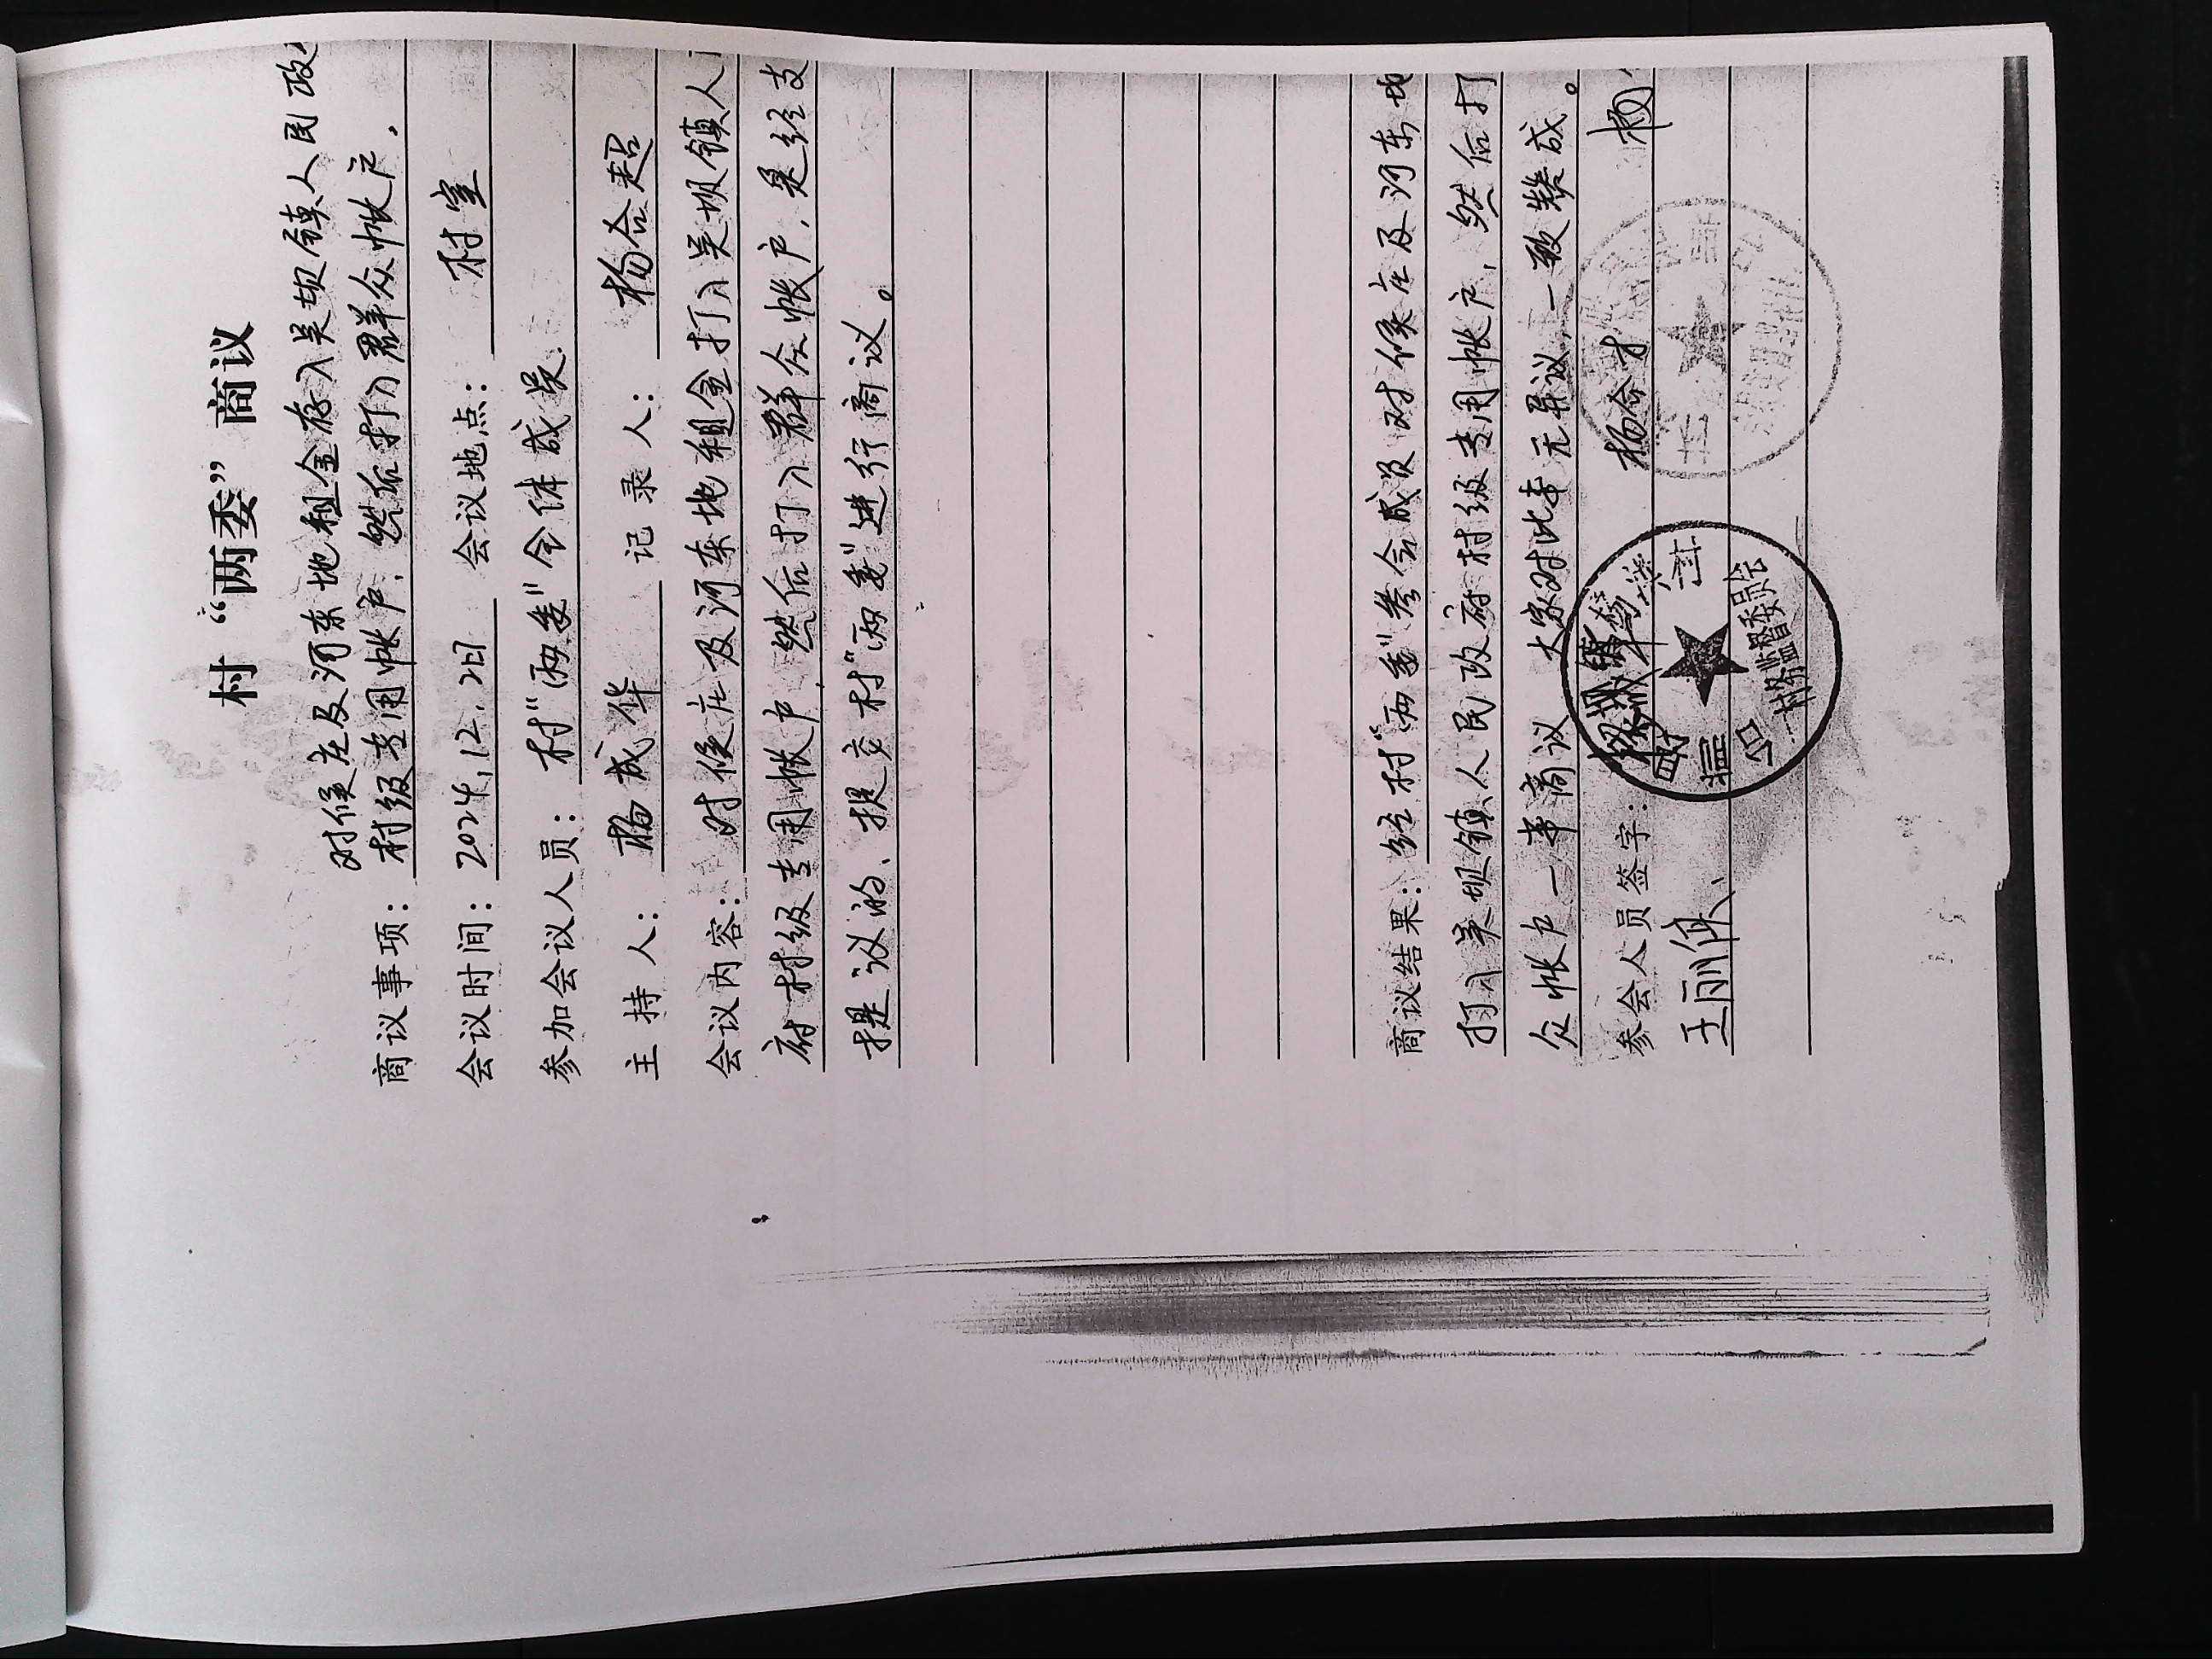 村“两委”商议
对侯庄及河东地租金存入吴坝镇人民政
商议事项：村级专用帐户，然后打入群众帐户。
会议时间：2024.12.2日 会议地点：村室
参加会议人员：村“两委”全体成员
主持人：杨成华 记录人：杨合超
会议内容：对侯庄及河东地租金打入吴坝镇人
府村级专用帐户，然后打入群众帐户，是经支
提议的、提交村“两委”进行商议。
商议结果：经村“两委”参会成员对侯庄及河东地
打入吴坝镇人民政府村级专用帐户，然后打
众帐户一事商议，大家对此事无异议，一致赞成。
参会人员签字： 杨合才 杨
王丽
村务监督委员会